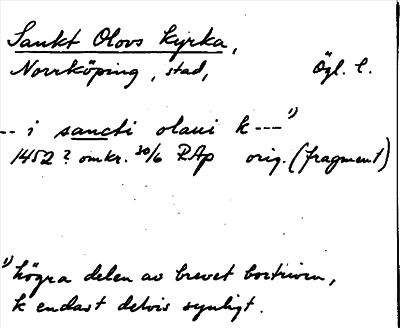 Sankt Olovs kyrka,
Norrköping, stad, Ögl. l.
-- i sancti olaui k---¹⁾
1452? omkr. 30/6 RAp orig. (fragment)
¹⁾ högra delen av brevet bortriven,
k endast delvis synligt.